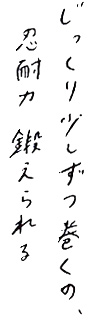 じっくり少しずつ巻くの、
忍耐力 鍛えられる